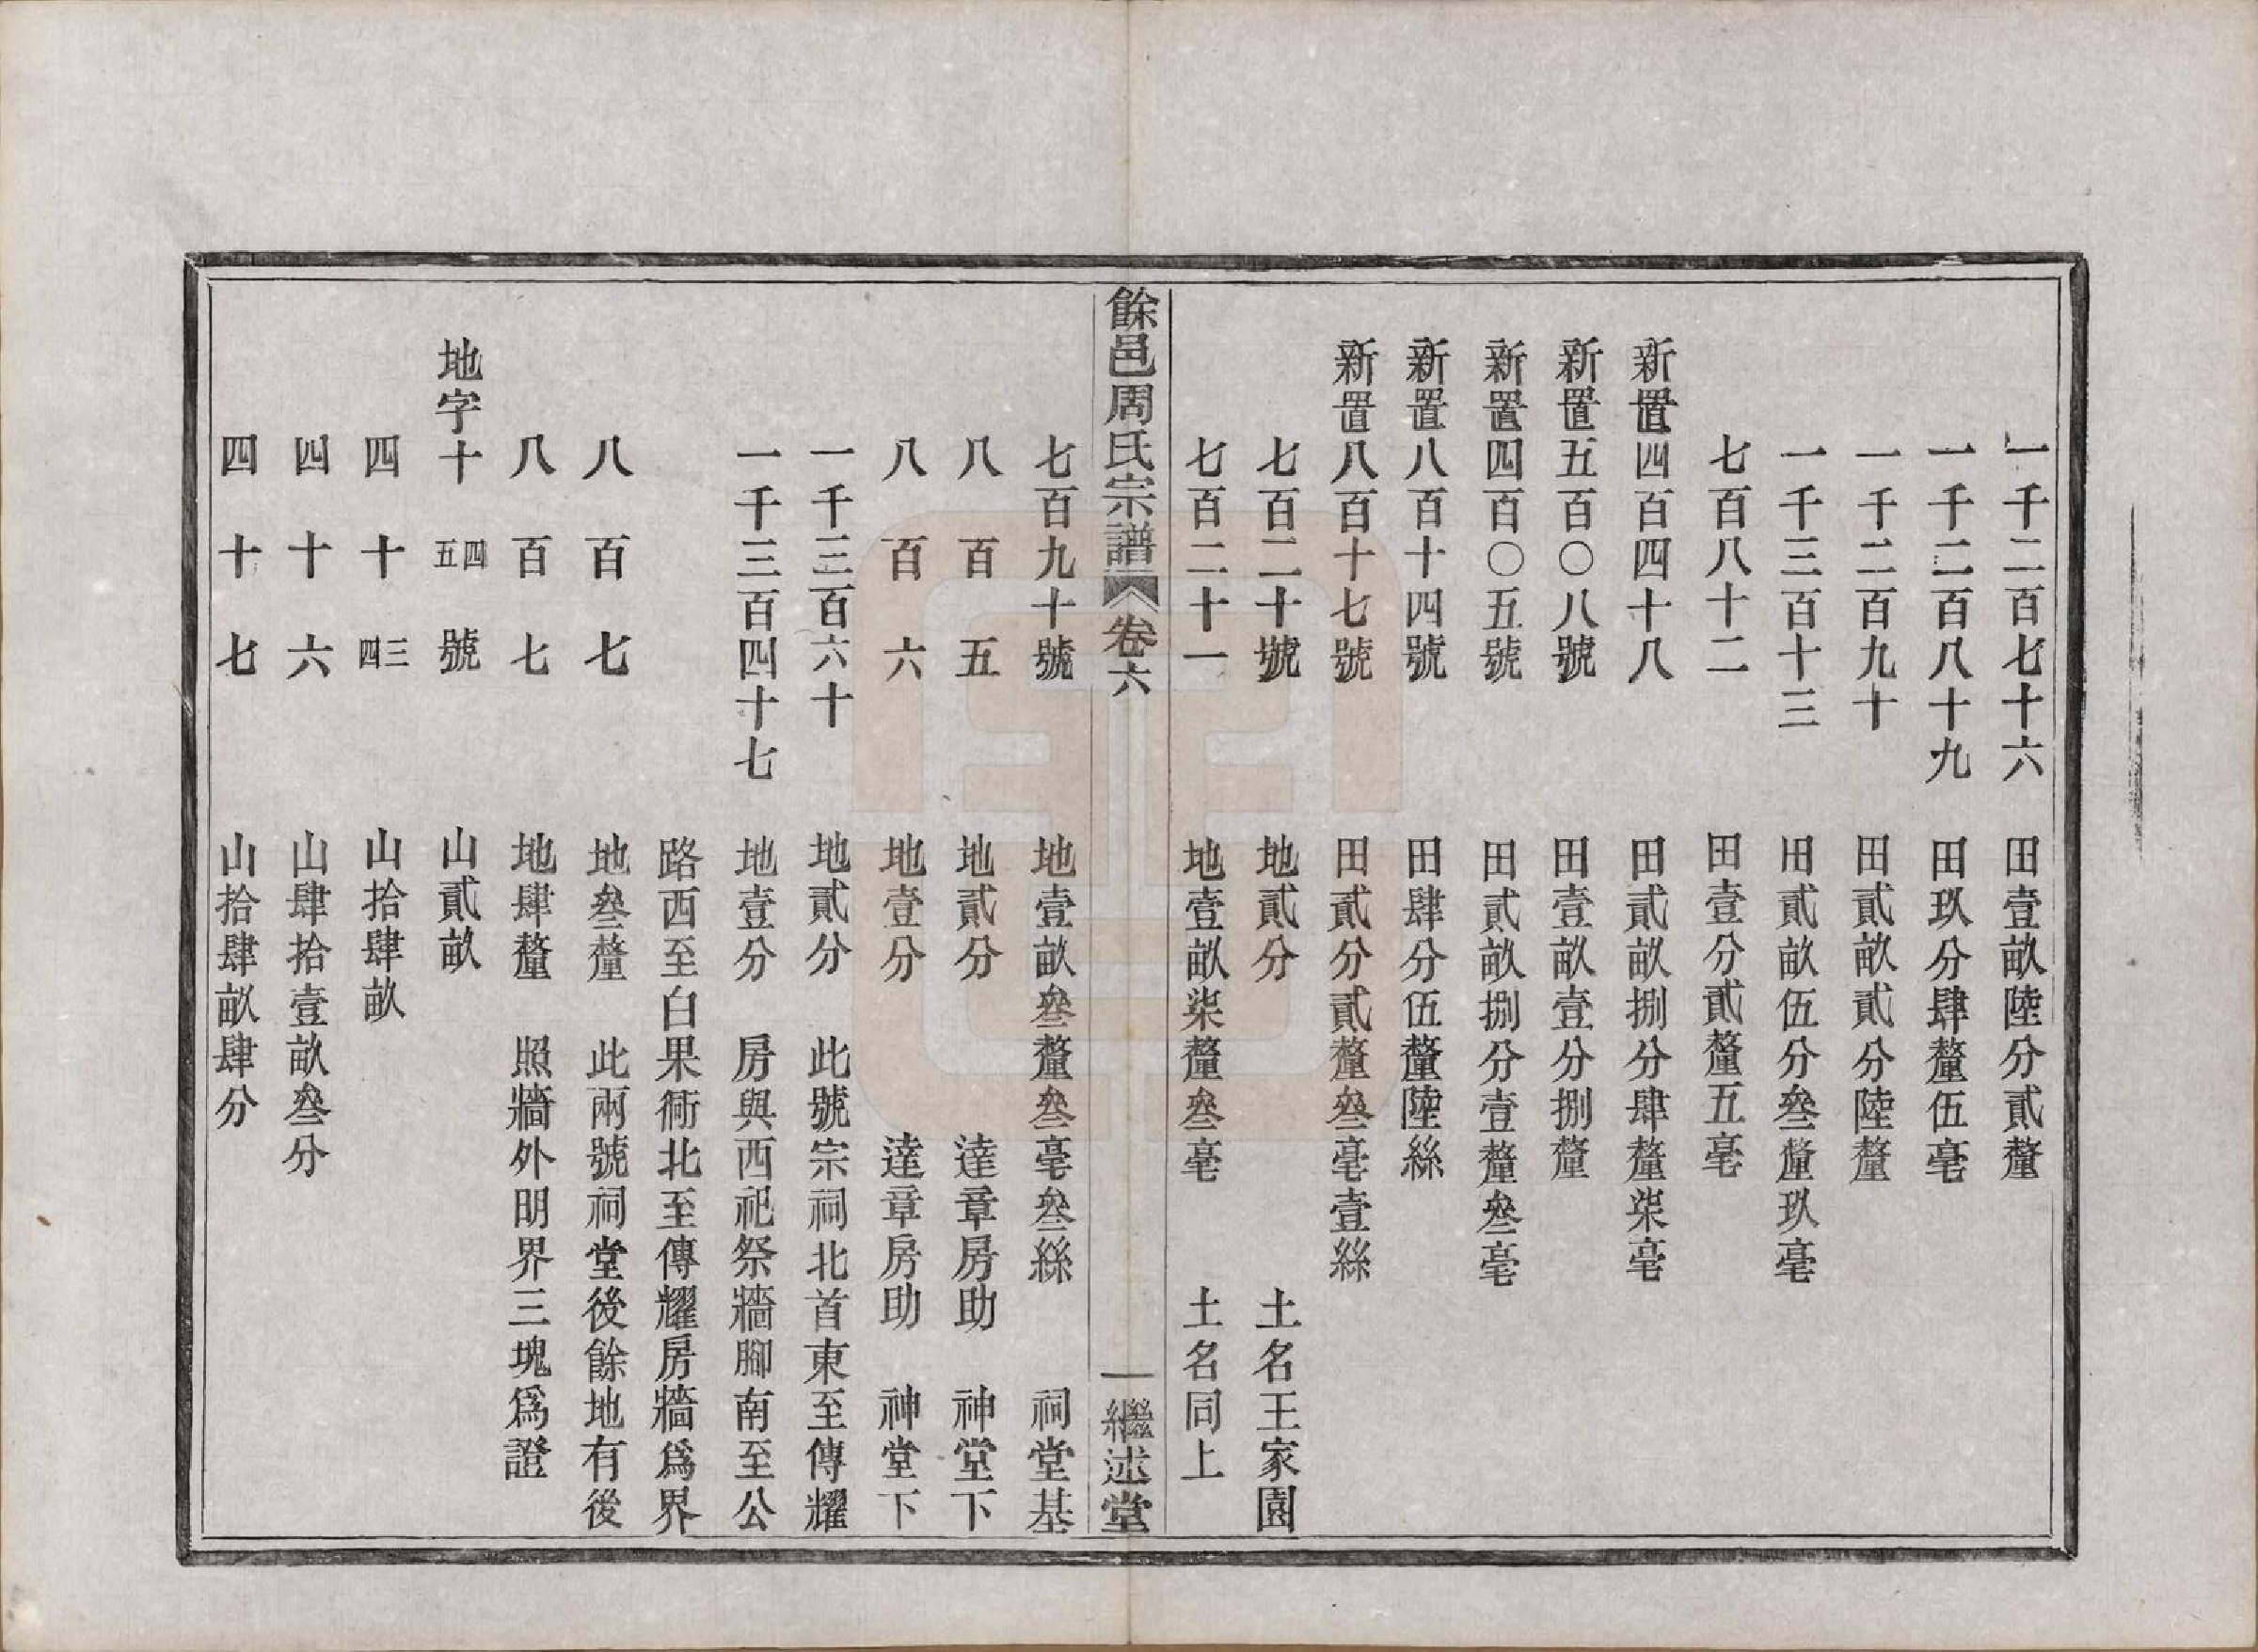 一千二百七十六　田壹畝陸分貳釐
一千二百八十九　田玖分肆釐伍毫
一千二百九十　田貳畝貳分陸釐
一千三百十三　田貳畝伍分叄釐玖毫
七百八十二　田壹分貳釐五毫
新置四百四十八　田貳畝捌分肆釐柒毫
新置五百〇八號　田壹畝壹分捌釐
新置四百〇五號　田貳畝捌分壹釐叄毫
新置八百十四號　田肆分伍釐陸絲
新置八百十七號　田貳分貳釐叄毫壹絲
七百二十號　地貳分　土名王家園
七百二十一　地壹畝柒釐叄毫　土名同上
餘邑周氏宗譜　卷六　一　繼述堂
七百九十號　地壹畝叄釐叄毫叄絲　祠堂基
八百五　地貳分　達章房助　神堂下
八百六　地壹分　達章房助　神堂下
一千三百六十　地貳分　此號宗祠北首東至傳耀
一千三百四十七　地壹分　房與西祀祭牆腳南至公
路西至白果衕北至傳耀房牆爲界
八百七　地叄釐　此兩號祠堂後餘地有後
八百七　地肆釐　照牆外明界三塊爲證
地字十四五號　山貳畝
四十三四　山拾肆畝
四十六　山肆拾壹畝叄分
四十七　山拾肆畝肆分